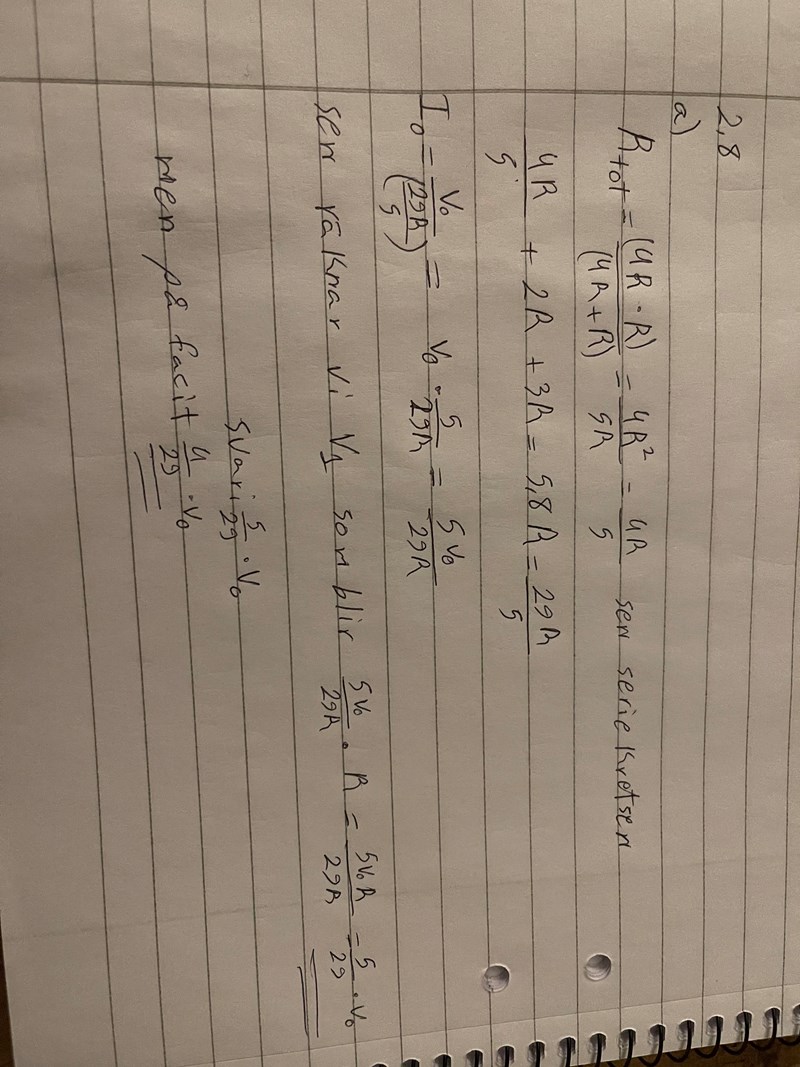 2,8
a)
R_tot = (4R · R) / (4R + R) = 4R² / 5R = 4R / 5 sen seriekretsen
4R / 5 + 2R + 3R = 5,8R = 29R / 5
I₀ = V₀ / (29R / 5) = V₀ · 5 / 29R = 5V₀ / 29R
sen räknar vi V₁ som blir 5V₀ / 29R · R = 5V₀R / 29R = 5 / 29 · V₀
svar: 5 / 29 · V₀
men på facit 4 / 29 · V₀